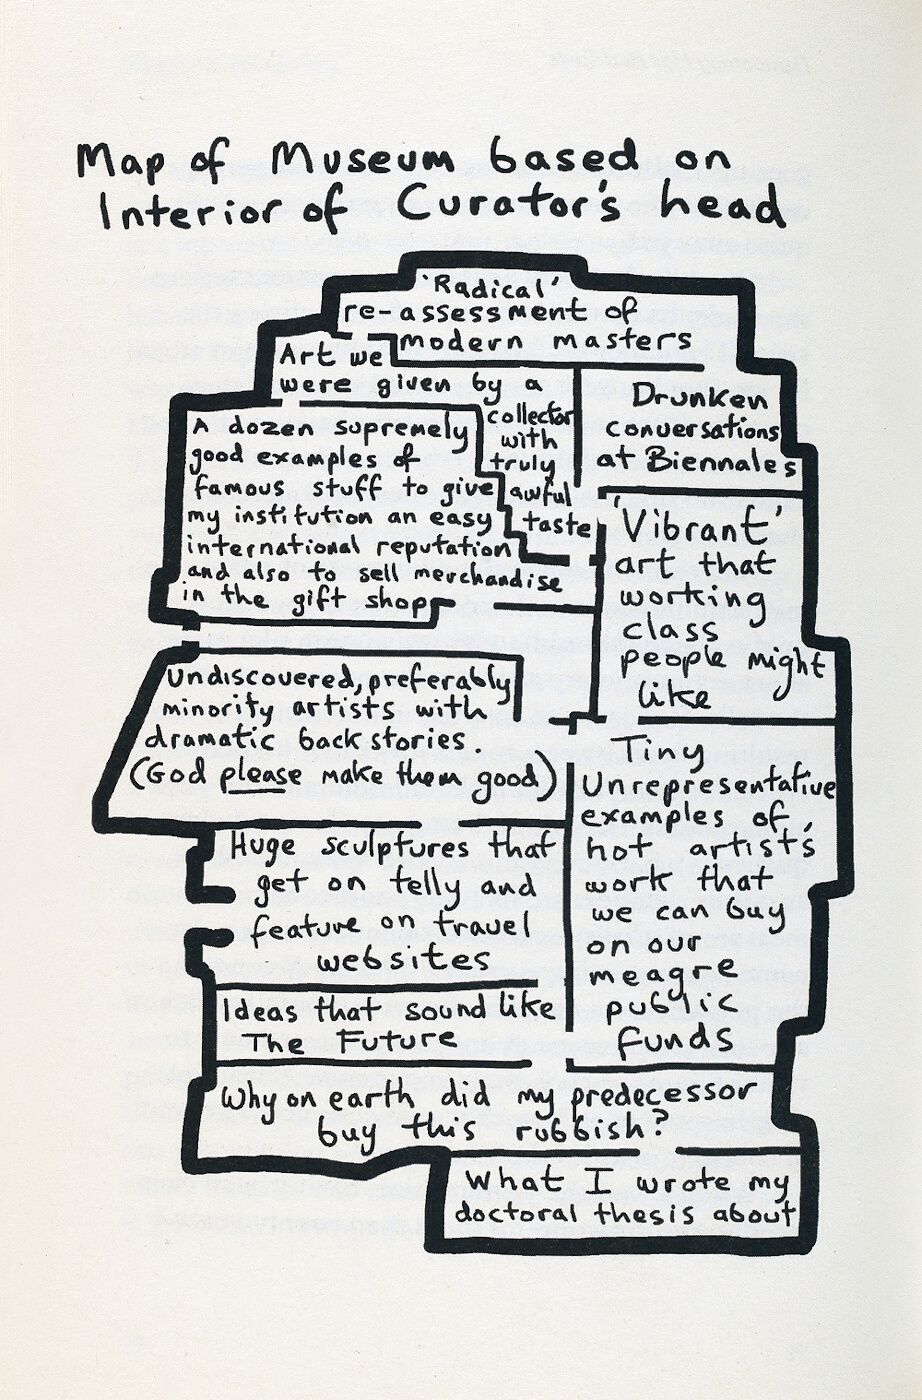 Map of Museum based on
Interior of Curator's head
'Radical'
re-assessment of
modern masters
Art we
were given by a
collector
with
truly
awful
taste
Drunken
conversations
at Biennales
A dozen supremely
good examples of
famous stuff to give
my institution an easy
international reputation
and also to sell merchandise
in the gift shop
'Vibrant'
art that
working
class
people might
like
Undiscovered, preferably
minority artists with
dramatic back stories.
(God please make them good)
Tiny
Unrepresentative
examples of
hot artist's
work that
we can buy
on our
meagre
public
funds
Huge sculptures that
get on telly and
feature on travel
websites
Ideas that sound like
The Future
Why on earth did my predecessor
buy this rubbish?
What I wrote my
doctoral thesis about